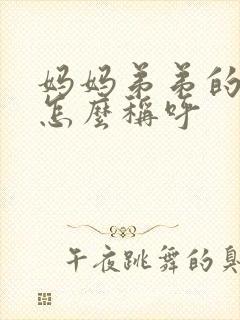 妈妈弟弟的
怎麼稱呼
午夜跳舞的臭